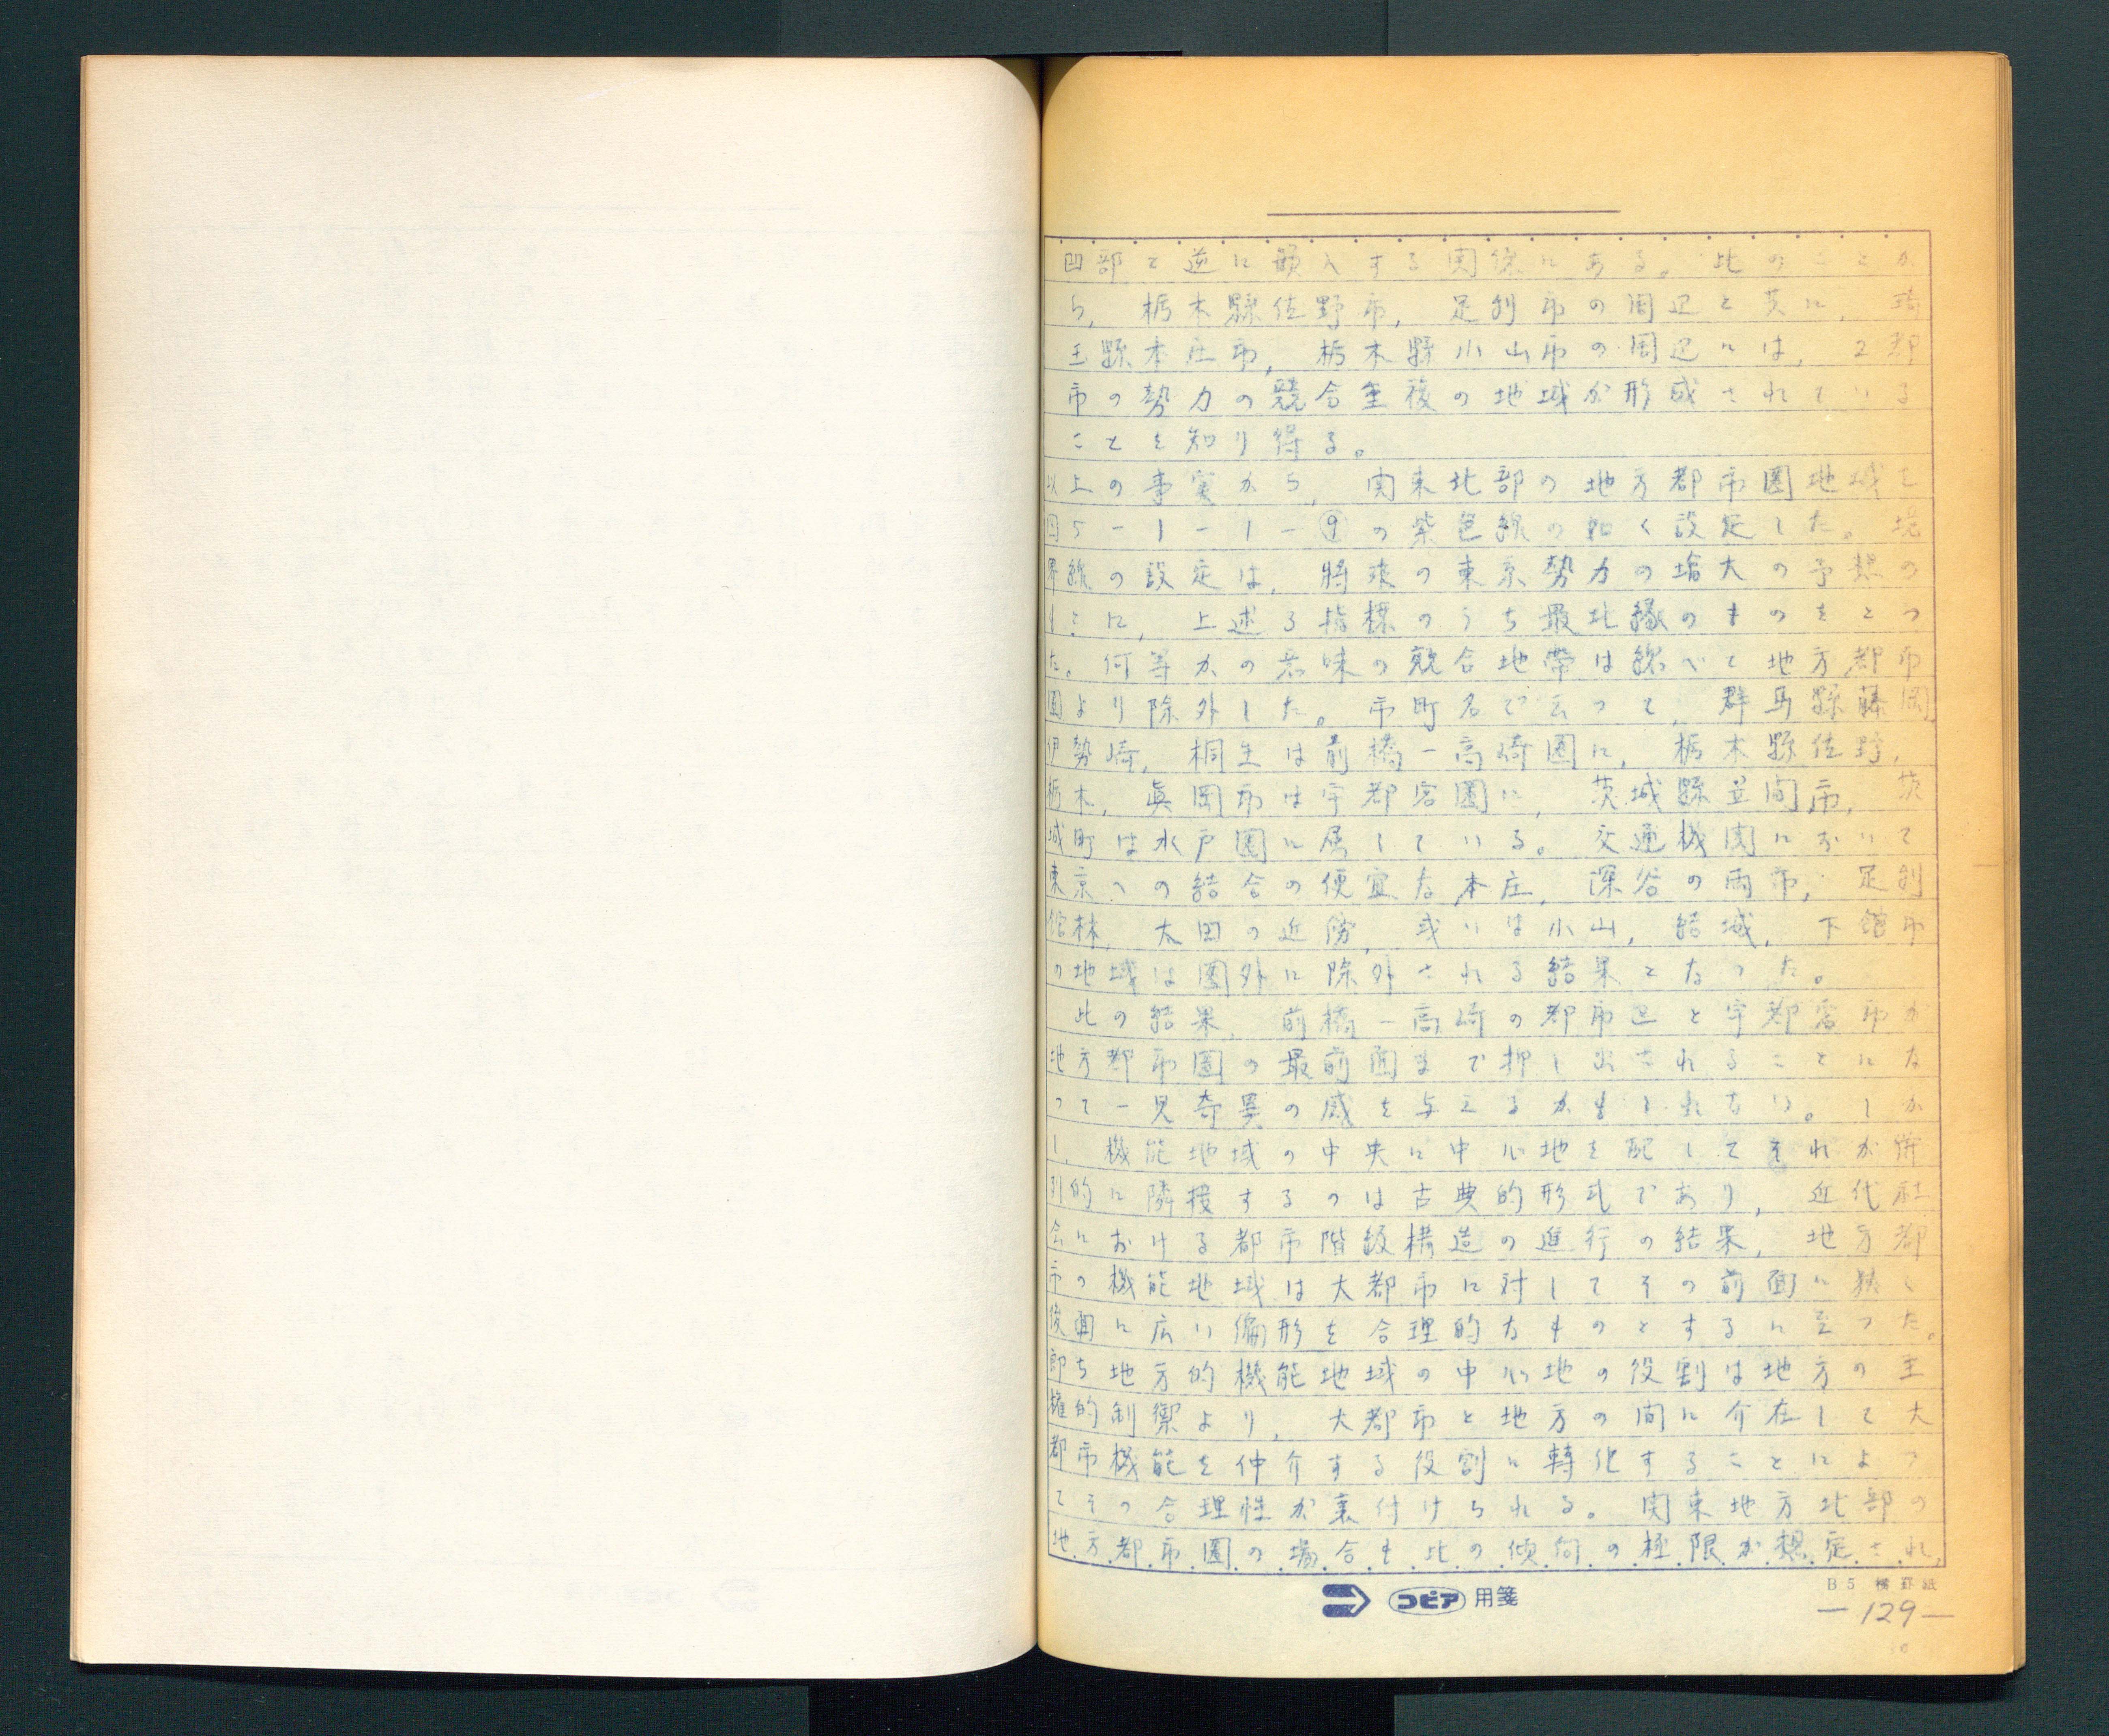 凹部と逆に嵌入する関係にある。此のことか
ら, 栃木縣佐野市, 足利市の周辺と共に, 埼
玉縣本庄市, 栃木縣小山市の周辺には, 2都
市の勢力の競合重複の地域が形成されている
ことを知り得る。
以上の事実から, 関東北部の地方都市圏地域を
図5-1-1-⑨の紫色線の如く設定した。境
界線の設定は, 将来の東京勢力の増大の予想の
もとに, 上述る指標のうち最北縁のものをとつ
た。何等かの意味の競合地帯は総べて地方都市
圏より除外した。市町名で云つて, 群馬縣藤岡
伊勢崎, 桐生は前橋-高崎圏に, 栃木縣佐野,
栃木, 眞岡市は宇都宮圏に, 茨城縣笠間市, 茨
城町は水戸圏に属している。交通機関において
東京への結合の便宜な本庄, 深谷の両市, 足利
館林, 太田の近傍, 或いは小山, 結城, 下館市
の地域は圏外に除外される結果となつた。
此の結果, 前橋-高崎の都市と宇都宮市が
地方都市圏の最前面まで押し出されることにな
つて一見奇異の感を与えるかもしれない。しか
し, 機能地域の中央に中心地を配してそれが併
列的に隣接するのは古典的形式であり, 近代社
会における都市階級構造の進行の結果, 地方都
市の機能地域は大都市に対してその前面に狭く
後面に広い偏形を合理的なものとするに至つた。
即ち地方的機能地域の中心地の役割は地方の主
権的制禦より, 大都市と地方の間に介在して大
都市機能を仲介する役割に轉化することによつ
てその合理性が裏付けられる。関東地方北部の
地方都市圏の場合も此の傾向の極限が想定され,
コピア 用箋
B5 横罫紙
—129—